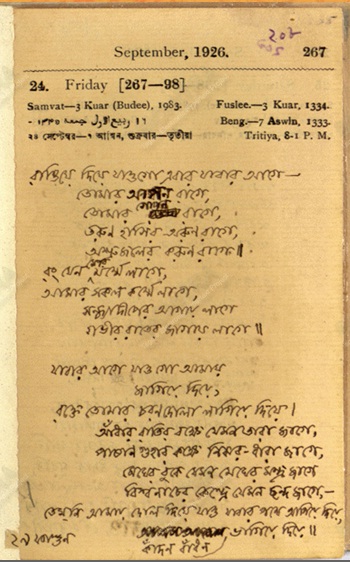 ২০৮
২০৮
September, 1926.
267
24. Friday [267—98]
Samvat—3 Kuar (Budee), 1983.
Fuslee.—3 Kuar, 1334.
Beng.—7 Aswin, 1333.
২৪ সেপ্টেম্বর—৭ আশ্বিন, শুক্রবার—তৃতীয়া
Tritiya, 8-1 P. M.
রাঙিয়ে দিয়ে যাওগো এবার যাবার আগে—
তোমার আপন রাগে,
তোমার গোপন রাগে,
তরুন হাসির অরুন রাগে,
অশ্রুজলের করুন রাগে॥
রং যেন মোর মর্ম্মে লাগে,
আমার সকল কর্ম্মে লাগে,
সন্ধ্যাদীপের আগায় লাগে
গভীর রাতের জাগায় লাগে॥
যাবার আগে যাও গো আমায়
জাগিয়ে দিয়ে,
রক্তে তোমার চরন দোলা লাগিয়ে দিয়ে।
আঁধার রাতির বক্ষে যেমন তারা জাগে,
পাষান গুহার কক্ষে নিঝর-ধারা জাগে,
মেঘের বুকে যেমন মেঘের মন্দ্র জাগে
বিশ্বনাচের কেন্দ্রে যেমন ছন্দ জাগে,—
তেমনি আমায় দোল দিয়ে যাও যাবার পথে আগিয়ে দিয়ে,
ভাগিয়ে দিয়ে॥
কাঁদন বাঁধন
২৯ ফাল্গুন